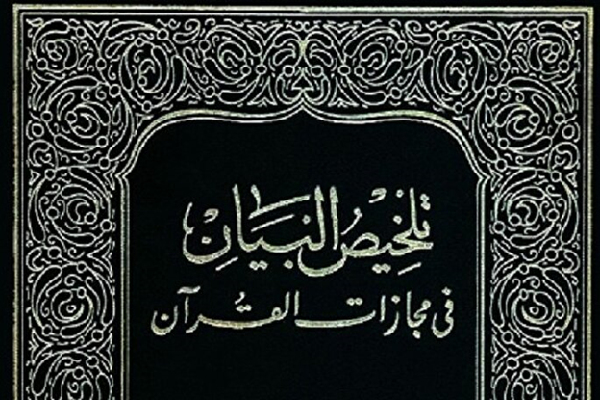 تلخيصُ البَيَانِ
في مجازات القُرآن